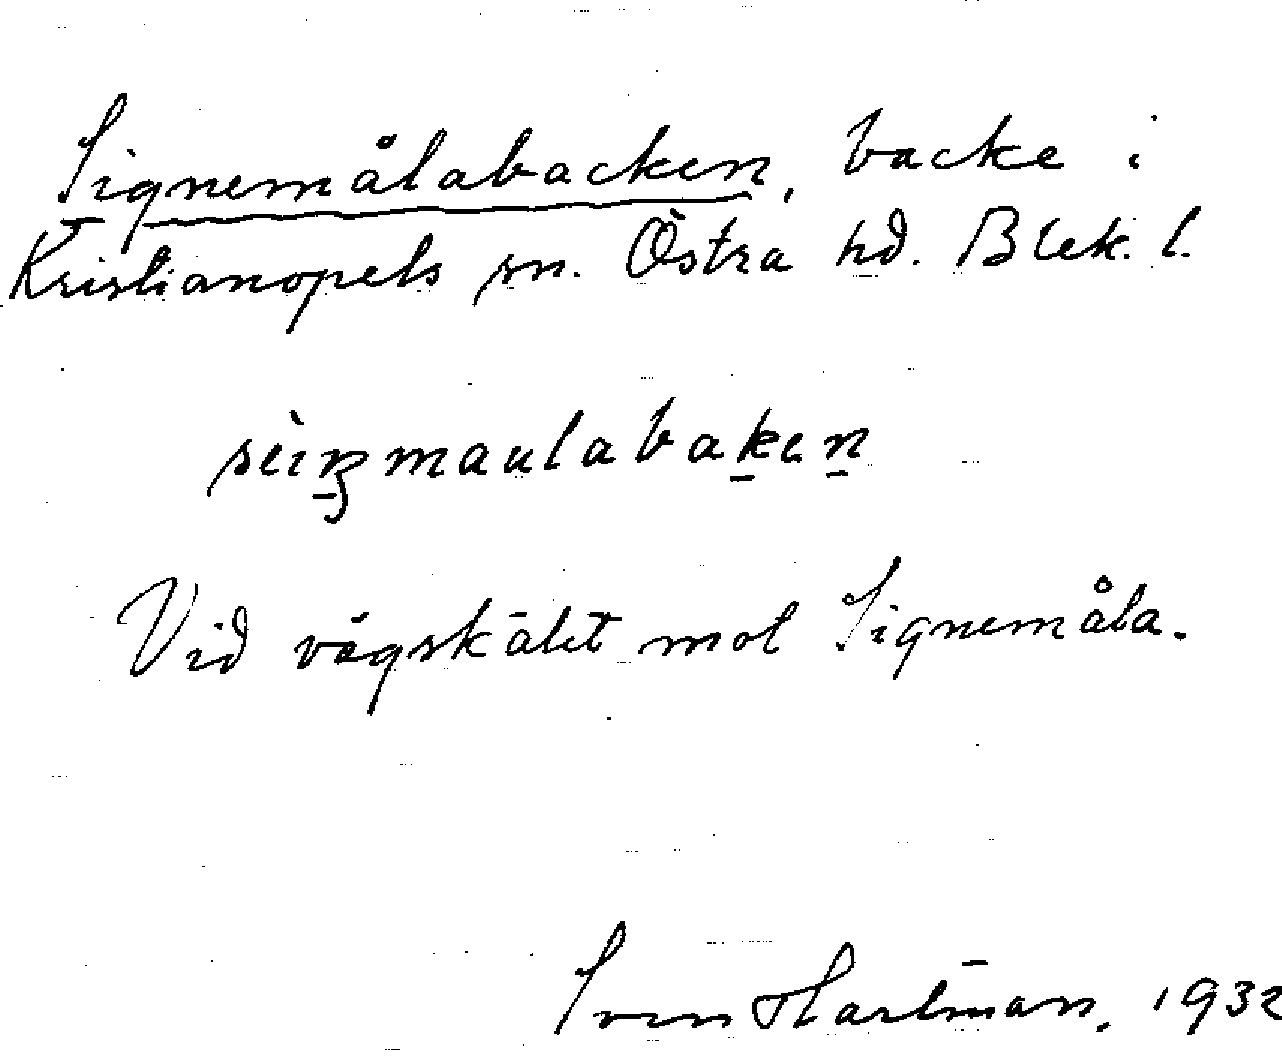 Signemålabacken, backe i
Kristianopels sn. Östra hd. Blek. l.
Vid vägskälet mot Signemåla.
Sven Hartman, 1932